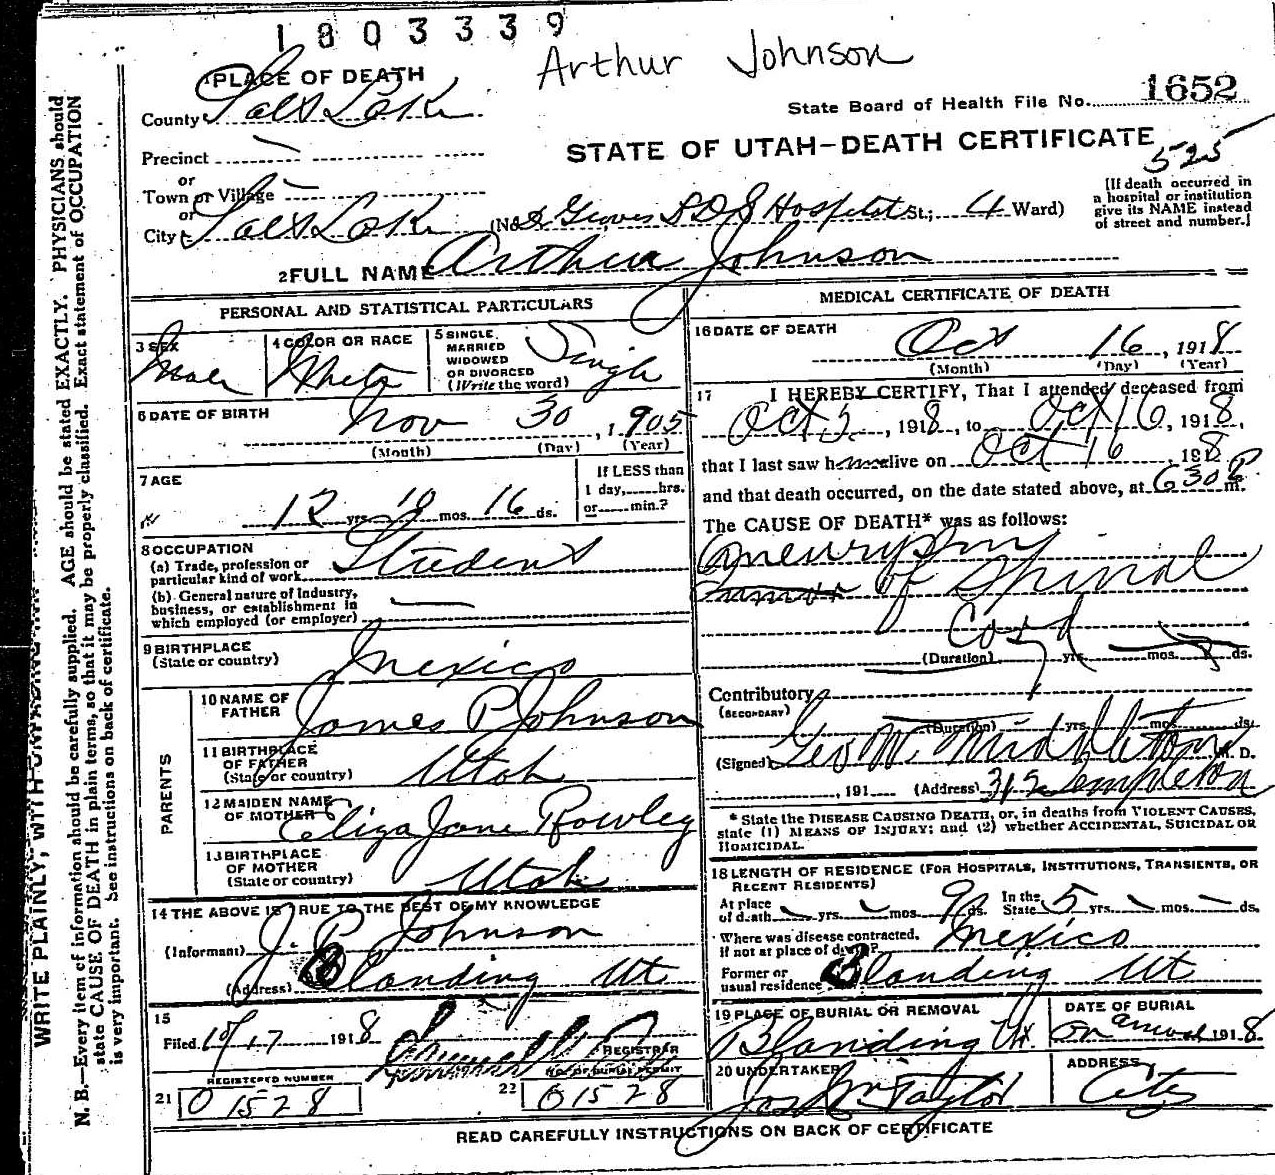 1803339
Arthur Johnson
1 PLACE OF DEATH
State Board of Health File No. 1652
County Salt Lake
STATE OF UTAH-DEATH CERTIFICATE
525
Precinct
or
Town or Village
or
City Salt Lake (No. Groves L D S Hospital St.; 4 Ward)
[If death occurred in
a hospital or institution
give its NAME instead
of street and number.]
2 FULL NAME Arthur Johnson
PERSONAL AND STATISTICAL PARTICULARS
3 SEX Male
4 COLOR OR RACE White
5 SINGLE, MARRIED WIDOWED OR DIVORCED (Write the word) Single
6 DATE OF BIRTH Nov 30, 1905
(Month) (Day) (Year)
7 AGE 12 yrs. 10 mos. 16 ds.
If LESS than
1 day, hrs.
or min.?
8 OCCUPATION
(a) Trade, profession or
particular kind of work Student
(b) General nature of Industry,
business, or establishment in
which employed (or employer)
9 BIRTHPLACE
(State or country) Mexico
PARENTS
10 NAME OF
FATHER James P Johnson
11 BIRTHPLACE
OF FATHER
(State or country) Utah
12 MAIDEN NAME
OF MOTHER Eliza Jane Rowley
13 BIRTHPLACE
OF MOTHER
(State or country) Utah
14 THE ABOVE IS TRUE TO THE BEST OF MY KNOWLEDGE
(Informant) J. P. Johnson
(Address) Blanding Ut
15
Filed 10/17 1918
REGISTRAR
REGISTERED NUMBER
21 01528
NO. OF BURIAL PERMIT
22 01528
MEDICAL CERTIFICATE OF DEATH
16 DATE OF DEATH
Oct 16, 1918
(Month) (Day) (Year)
17 I HEREBY CERTIFY, That I attended deceased from
Oct 5, 1918, to Oct 16, 1918,
that I last saw h alive on Oct 16 1918
and that death occurred, on the date stated above, at 630 P m.
The CAUSE OF DEATH* was as follows:
Aneurysm
of Spinal
Cord
(Duration) yrs. mos. ds.
Contributory
(SECONDARY)
(Duration) yrs. mos. ds.
(Signed) Geo W. Middleton M. D.
, 191 (Address) 312 Templeton
* State the DISEASE CAUSING DEATH, or, in deaths from VIOLENT CAUSES,
state (1) MEANS OF INJURY; and (2) whether ACCIDENTAL, SUICIDAL OR
HOMICIDAL.
18 LENGTH OF RESIDENCE (FOR HOSPITALS, INSTITUTIONS, TRANSIENTS, OR
RECENT RESIDENTS)
At place
of death yrs. mos. 9 ds. In the
State 5 yrs. mos. ds.
Where was disease contracted,
if not at place of death? Mexico
Former or
usual residence Blanding Ut
19 PLACE OF BURIAL OR REMOVAL
Blanding Ut.
DATE OF BURIAL
on arrival 1918
20 UNDERTAKER
Jos Wm Taylor
ADDRESS
City
READ CAREFULLY INSTRUCTIONS ON BACK OF CERTIFICATE
N. B.—Every item of information should be carefully supplied. AGE should be stated EXACTLY. PHYSICIANS should
state CAUSE OF DEATH in plain terms, so that it may be properly classified. Exact statement of OCCUPATION
is very important. See instructions on back of certificate.